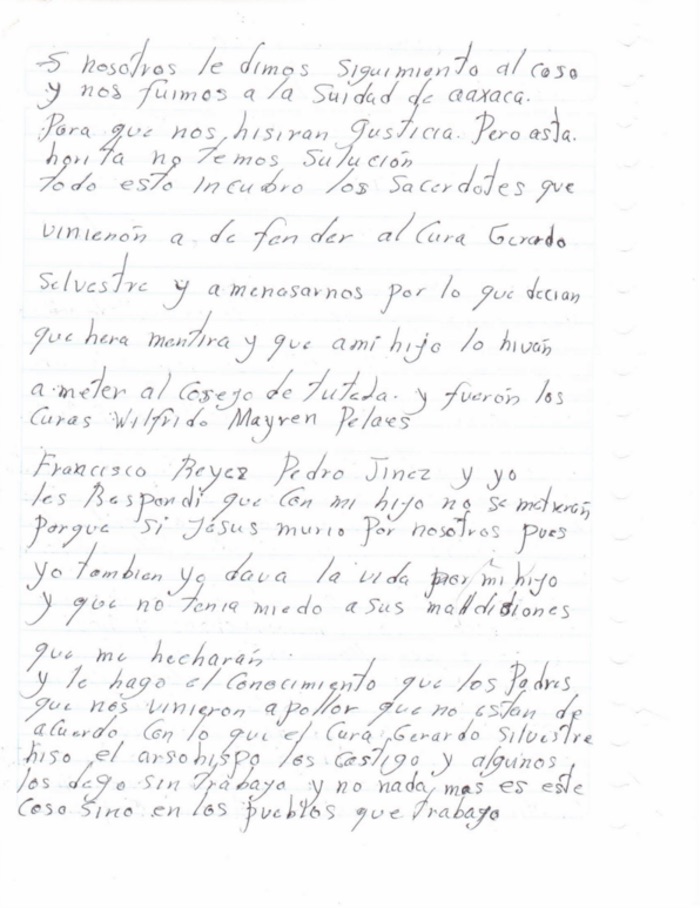 5 nosotros le dimos siguimiento al caso
y nos fuimos a la Suidad de oaxaca.
Para que nos hisiran Justicia. Pero asta.
horita no temos sulución
todo esto incubro los Sacerdotes que
vinienón a de fen der al Cura Gerardo
Selvestre y amenasarnos por lo que decian
que hera mentira y que ami hijo lo hivan
a meter al Cosejo de tutada. y fuerón los
Curas Wilfrido Mayren Pelaes
Francisco Reyez Pedro Jinez y yo
les Respondi que con mi hijo no se metieran
Porque si Jesus murio Por nosotros pues
yo tombien yo dava la vida por mi hijo
y que no tenia miedo a sus maldisiones
que me hecharán
y le hago el Conocimiento que los Padres
que nos vinieron apollar que no estan de
acuerdo con lo que el Cura Gerardo Silvestre
hiso el arsohispo los Castigo y algunos
los dego sin trabajo y no nada mas es este
Caso sino en los pueblos que trabajo